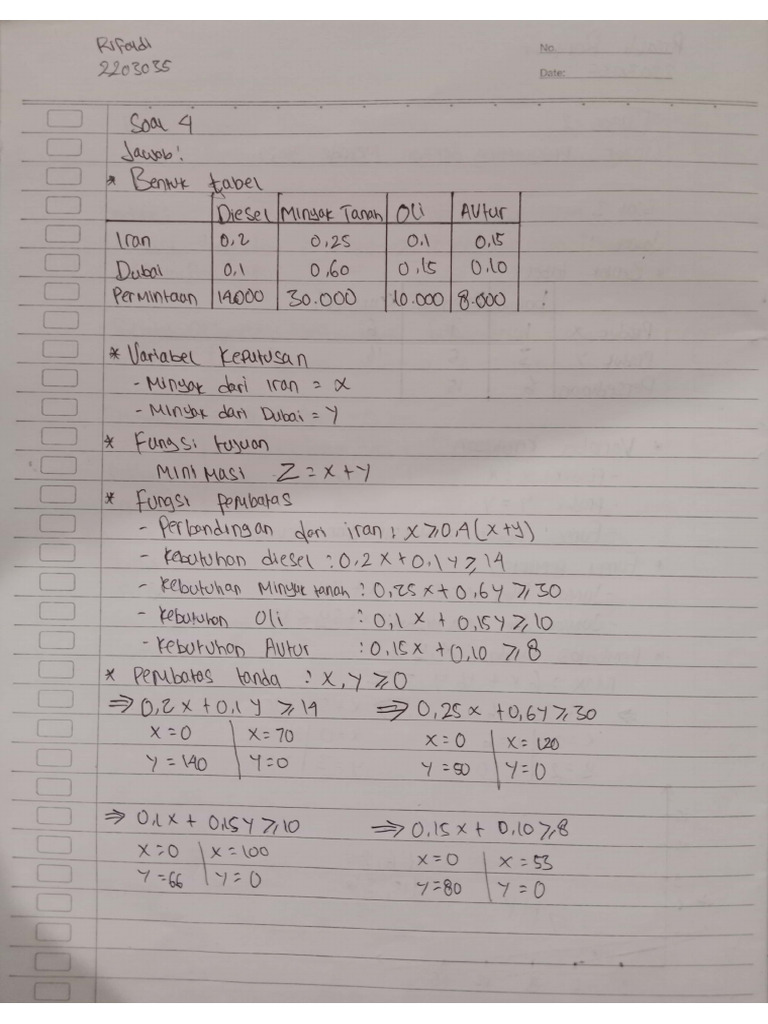 Rifaldi
2203035
No.
Date:
Soal 4
Jawab:
* Bentuk tabel
Diesel Minyak Tanah Oli Avtur
Iran 0,2 0,25 0.1 0,15
Dubai 0,1 0,60 0,15 0,10
Permintaan 14.000 30.000 10.000 8.000 :
* Variabel Keputusan
- Minyak dari Iran = x
- Minyak dari Dubai = y
* Fungsi tujuan
Minimasi Z = x + y
* Fungsi pembatas
- Perbandingan dari iran : x ≥ 0,4 (x+y)
- Kebutuhan diesel : 0,2x + 0,1y ≥ 14
- Kebutuhan Minyak tanah : 0,25x + 0,6y ≥ 30
- Kebutuhan Oli : 0,1x + 0,15y ≥ 10
- Kebutuhan Avtur : 0,15x + 0,10 ≥ 8
* Pembatas tanda : x, y ≥ 0
⇒ 0,2x + 0,1y ≥ 14 ⇒ 0,25x + 0,6y ≥ 30
x = 0 x = 70 x = 0 x = 120
y = 140 y = 0 y = 50 y = 0
⇒ 0,1x + 0,15y ≥ 10 ⇒ 0,15x + 0,10 ≥ 8
x = 0 x = 100 x = 0 x = 53
y = 66 y = 0 y = 80 y = 0